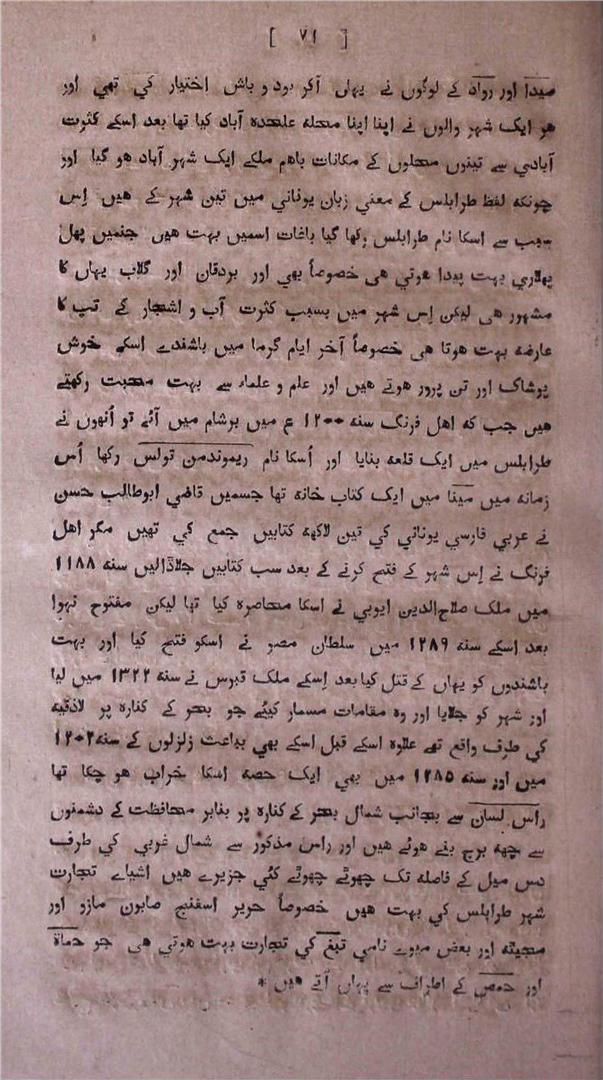 [ ٧١ ]
صيدا اور رواد کے لوگوں نے يہاں آکر بود و باش اختيار کي تھي اور
ھر ايک شہر والوں نے اپنا اپنا محلہ علحدہ آباد کيا تھا بعد اسکے کثرت
آبادي سے تينوں محلوں کے مکانات باھم ملکے ايک شہر آباد ھو گيا اور
چونکہ لفظ طرابلس کے معني زبان يوناني ميں تين شہر کے ھيں اِس
سبب سے اسکا نام طرابلس رکھا گيا باغات اسميں بہت ھيں جنميں پھل
پھلاري بہت پيدا ھوتي ھى خصوصاً بھي اور بردقان اور گلاب يہاں کا
مشہور ھى ليکن اِس شہر ميں بسبب کثرت آب و اشجار کے تپ کا
عارضہ بہت ھوتا ھى خصوصاً آخر ايام گرما ميں باشندے اسکے خوش
پوشاک اور تن پرور ھوتے ھيں اور علم و علماء سے بہت محبت رکھتے
ھيں جب کہ اھل فرنگ سنہ ١٢٠٠ ع ميں برشام ميں آئے تو اُنھوں نے
طرابلس ميں ايک قلعہ بنايا اور اُسکا نام ريموندمن تولس رکھا اُس
زمانہ ميں مينا ميں ايک کتاب خانہ تھا جسميں قاضي ابوطالب حسن
نے عربي فارسي يوناني کي تين لاکھہ کتابيں جمع کي تھيں مگر اھل
فرنگ نے اِس شہر کے فتح کرنے کے بعد سب کتابيں جلاڈاليں سنہ ١١٨٨
ميں ملک صلاح‌الدين ايوبي نے اسکا محاصرہ کيا تھا ليکن مفتوح نہوا
بعد اسکے سنہ ١٢٨٩ ميں سلطان مصر نے اسکو فتح کيا اور بہت
باشندوں کو يہاں کے قتل کيا بعد اِسکے ملک قبرس نے سنہ ١٣٢٢ ميں ليا
اور شہر کو جلايا اور وہ مقامات مسمار کيئے جو بحر کے کنارہ پر لاذقيہ
کي طرف واقع تھے علاوہ اسکے قبل اسکے بھي بباعث زلزلوں کے سنہ ١٢٠٢
ميں اور سنہ ١٢٨٥ ميں بھي ايک حصہ اسکا خراب ھو چکا تھا
راس لسان سے بجانب شمال بحر کے کنارہ پر بنابر محافظت کے دشمنوں
سے چھہ برج بنے ھوئے ھيں اور راس مذکور سے شمال غربي کي طرف
دس ميل کے فاصلہ تک چھوٹے چھوٹے کئي جزيرے ھيں اشياے تجارت
شہر طرابلس کي بہت ھيں خصوصاً حرير اسفنج صابون مازو اور
مجيٹھہ اور بعض ميوے نامي تبغ کي تجارت بہت ھوتي ھى جو حماة
اور حمص کے اطراف سے يہاں آتے ھيں *